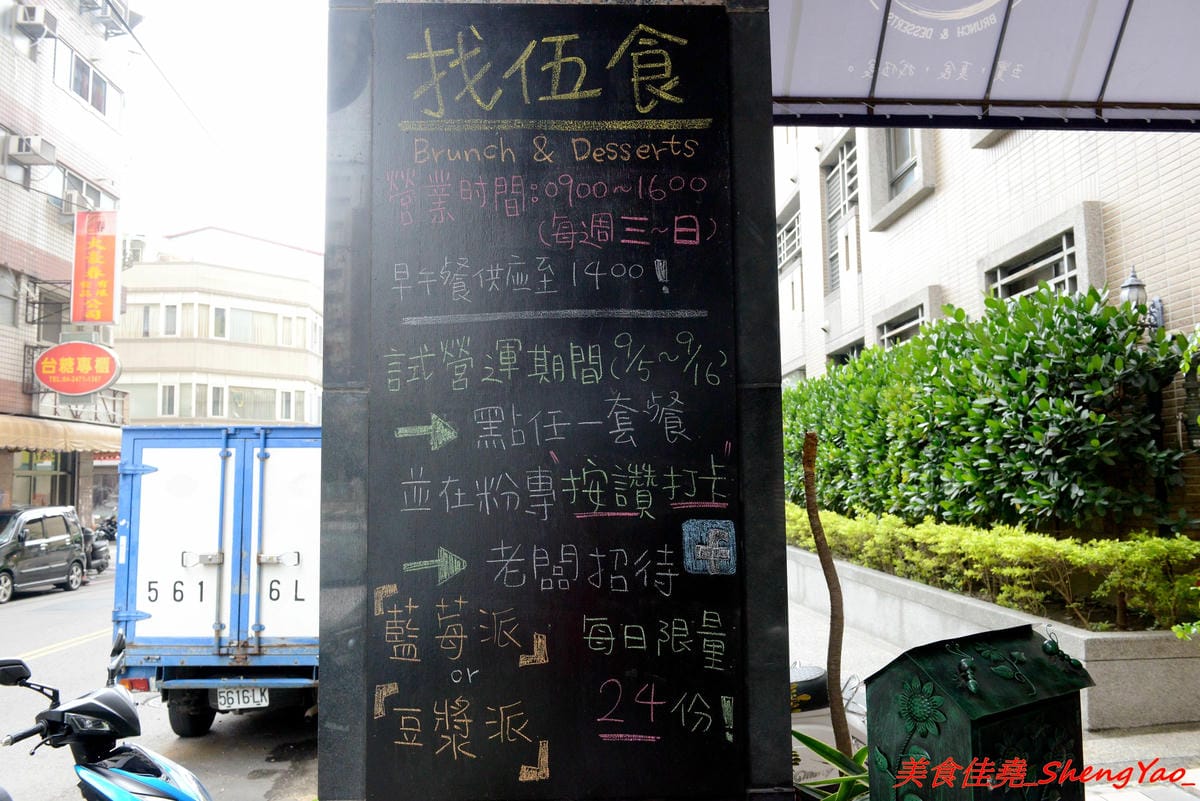 找伍食
Brunch & Desserts
營業时間:0900~1600
(每週三~日)
早午餐供應至1400!
試營運期間(9/5~9/16)
→ 點任一套餐
並在粉專"按讚打卡"
→ 老闆招待
『藍莓派』
or
『豆漿派』
每日限量
24份!
BRUNCH & DESSERTS
台糖專櫃
TEL:04-2471-1367
有限公司
561 6L
5616-LK
美食佳堯_ShengYao_